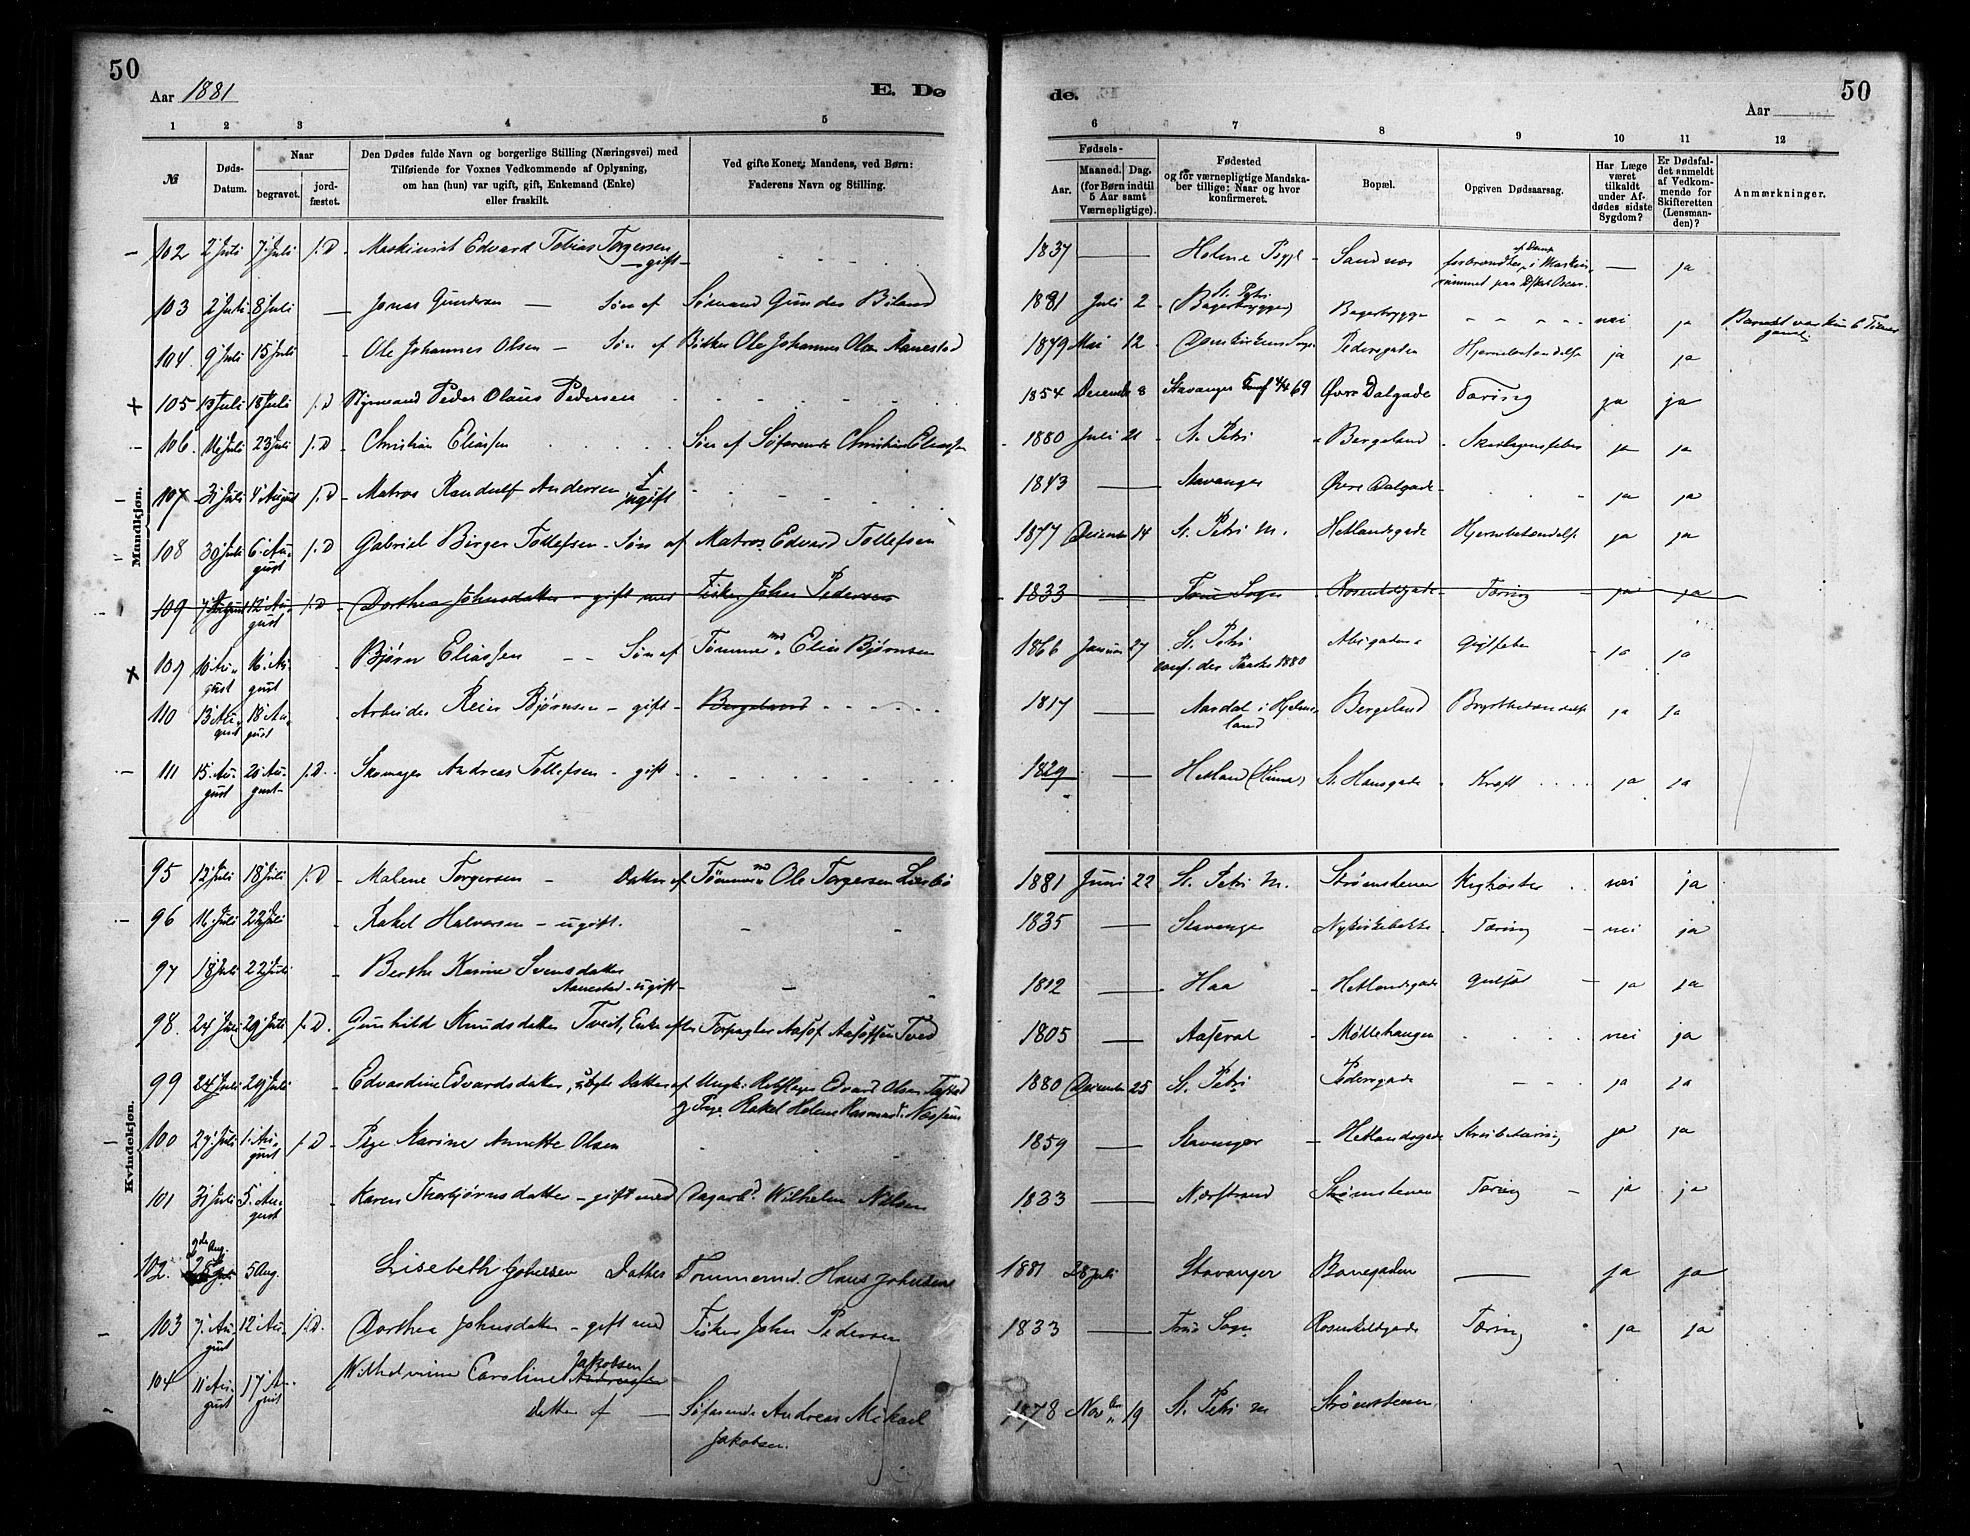 50
Aar 1881
E. Dø
1 2 3 4 5
№
Døds-Datum.
Naar
begravet.
jordfæstet.
Den Dødes fulde Navn og borgerlige Stilling (Næringsvei) med
Tilføiende for Voxnes Vedkommende af Oplysning,
om han (hun) var ugift, gift, Enkemand (Enke)
eller fraskilt.
Ved gifte Koner: Mandens, ved Børn:
Faderens Navn og Stilling.
Mandkjøn.
102 2 Juli 7 Juli j.D Maskinist Edvard Tobias Torgersen
gift
103 2 Juli 8 Juli Jonas Gundersen Søn af Gunder
104 9 Juli 15 Juli Ole Johannes Olsen Søn af Ole Johannes Olsen Aanestad
105 13 Juli 18 Juli j.D Styrmand Peder Olaus Pedersen
106 16 Juli 23 Juli j.D Christian Eliassen Søn af Søfarende Christian Eliassen
107 31 Juli 4 August j.D Matros Randulf Andersen ugift
108 30 Juli 6 August j.D Gabriel Birger Tollefsen Søn af Matros Edvard Tollefsen
109 7 August 12 August j.D Dorthea Johnsdatter gift med Fisker John Pedersen
109 10 August 16 August Bjørn Eliassen Søn af Tømmermd Elias Bjørnsen
110 13 August 18 August Arbeider Reier Bjørnsen gift Bergeland
111 15 August 20 August j.D. Skomager Andreas Tollefsen gift
Kvindekjøn.
95 12 Juli 18 Juli j.D Malene Torgersen Datter af Tømmermd Ole Torgersen
96 16 Juli 22 Juli Rakel Halvorsen ugift.
97 18 Juli 22 Juli Berthe Karine Svensdatter
Aanestad ugift
98. 24 Juli 29 Juli j.D. Gunhild Knudsdatter Tveit, Enke efter Forpagter
99 24 Juli 29 Juli Edvardine Edvardsdatter, Datter af Ungk. Edvard Olsen
og Pige Rakel Helene
100 27 Juli 1 August j.D Pige Karine Annette Olsen
101 31 Juli 5 August Karen Thorbjørnsdatter gift med Dagarb. Wilhelm Nilsen
102. 2de Aug. 5 Aug. Lisebeth Johnsen Datter Tømmermd. Hans Johnsen
103 7 August 12 August j.D. Dorthea Johnsdatter gift med Fisker John Pedersen
104 11 August 17 August Wilhelmine Caroline Jakobsen
Datter af Søfarende Andreas Mikael
Jakobsen.
de.
50
Aar
6 7 8 9 10 11 12
Fødsels-
Aar.
Maaned. Dag.
(for Børn indtil
5 Aar samt
Værnepligtige).
Fødested
og for værnepligtige Mandska-
ber tillige: Naar og hvor
konfirmeret.
Bopæl.
Opgiven Dødsaarsag.
Har Læge
været
tilkaldt
under Af-
dødes sidste
Sygdom?
Er Dødsfal-
det anmeldt
af Vedkom-
mende for
Skifteretten
(Lensman-
den)?
Anmærkninger.
1837 Helene Sandnæs forbrændtes af Damp i Maskin-
rummet paa ja
1881 Juli 2 St. Petri Bagerbrygge nei ja Barnet var kun 6 Timer
gamel
1879 Mai 12 Domkirkens Sogn Pedersgaden Hjernebetændelse ja ja
1854 December 8 Stavanger Øvre Dalgade Tæring ja ja
1880 Juli 21 St. Petri Bergeland Skarlagensfeber ja ja
1843 Stavanger Øvre Dalgade ja ja
1877 December 14 St. Petri M. Hetlandsgade Hjernebetændelse ja ja
1833 Sogn Rosenkildegade Tæring ja ja
1866 Januar 27 St. Petri
conf. der Paaske 1880 ja ja
1817 Aardal i Hjelme-
land Bergeland Brystbetændelse ja ja
1829 Hetland St. Hansgade Kræft ja ja
1881 Juni 22 St. Petri M. Strømstenen Kighoste nei ja
1835 Stavanger Nykirkebakke Tæring nei ja
1812 Haa Hetlandsgade Gulsot ja ja
1805 Aaseral Møllehaugen nei ja
1880 December 25 St. Petri Pedersgade ja ja
1859 Stavanger Hetlandsgade Strubetæring ja ja
1833 Nærstrand Strømstenen Tæring ja ja
1881 28 Juli Stavanger Banegaden ja ja
1833 Sogn Rosenkildegade Tæring ja ja
1878 Novbr 19 St. Petri M Strømstenen